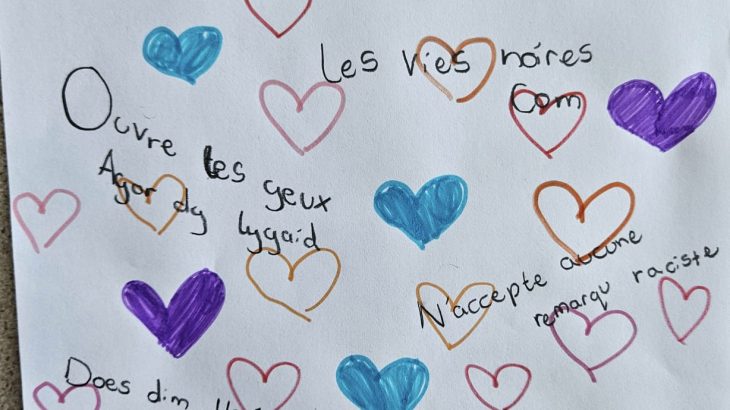 Les vies noires
Com
Ouvre les yeux
Agor dy
lygaid
N'accepte aucune
remarqu raciste
Does dim